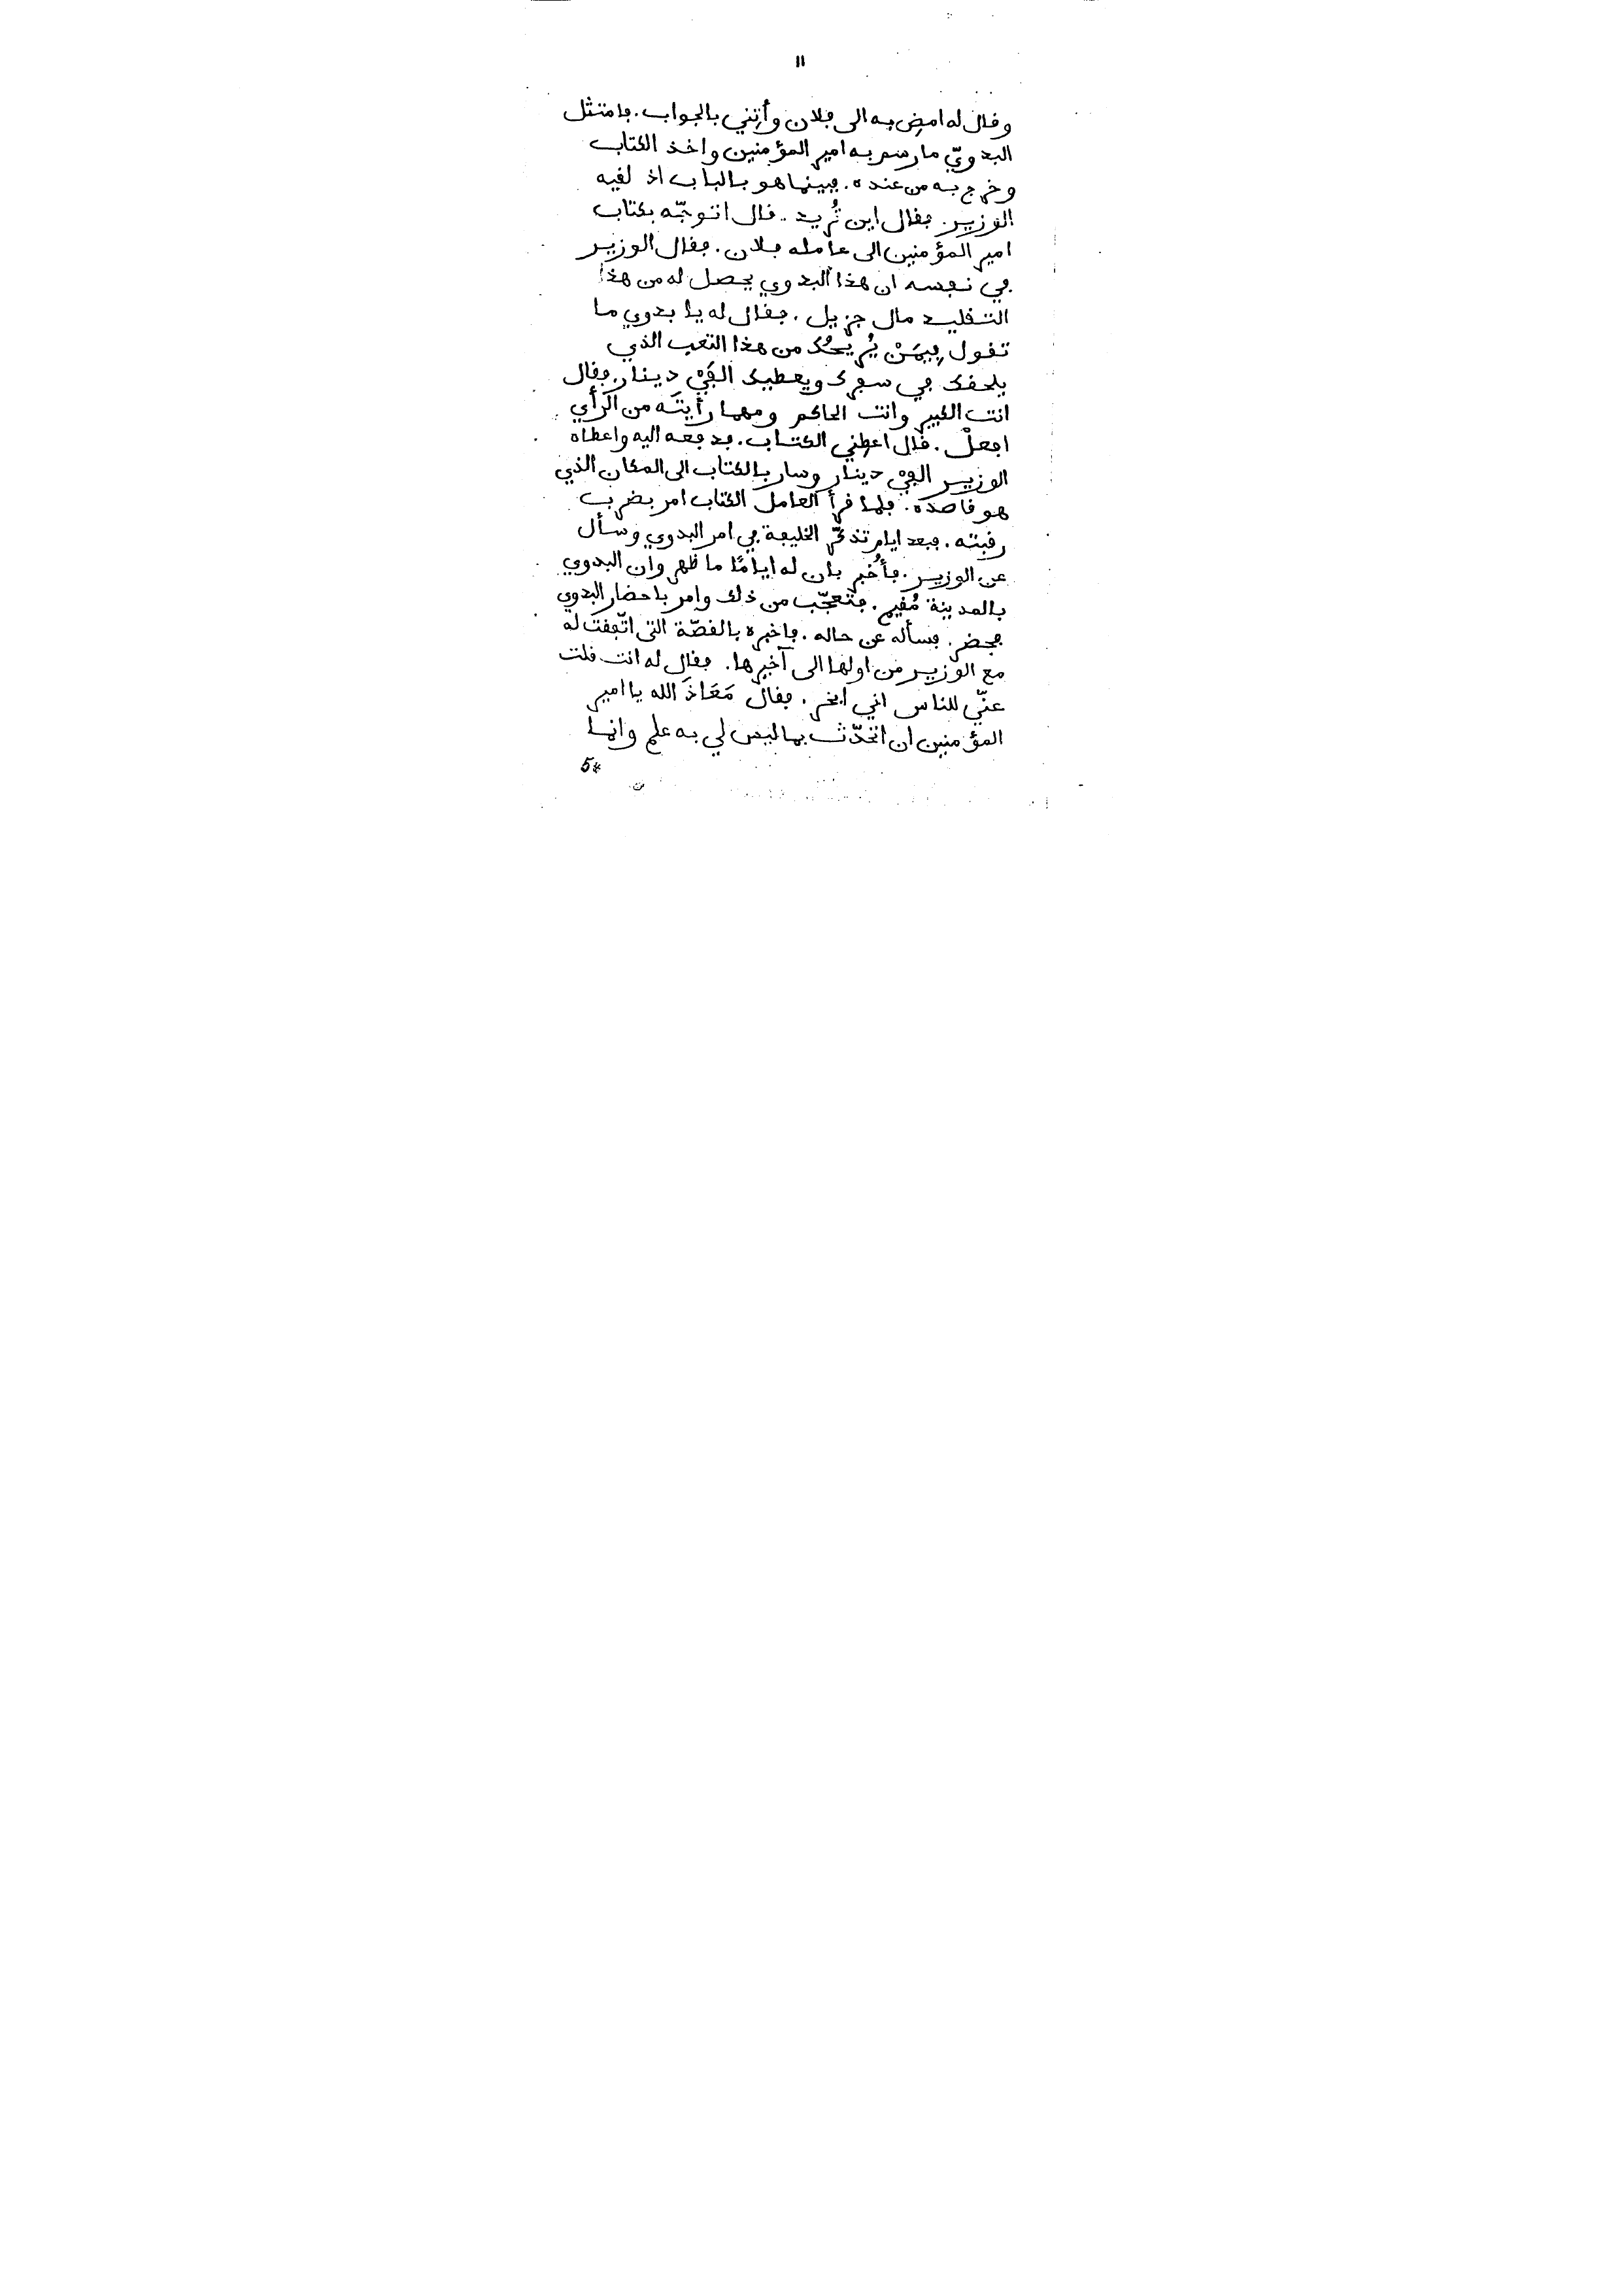 ١١
وقال له امضِ به الى فلان وأْتِني بالجواب. فامتثل
البدويّ ما رسم به امير المؤمنين واخذ الكتاب
وخرج به من عنده. فبينما هو بالباب اذ لقيه
الوزير. فقال اين تُريد. قال اتوجّه بكتاب
امير المؤمنين الى عامله فلان. فقال الوزير
في نفسه ان هذا البدوي يحصل له من هذا
التقليد مال جزيل. فقال له يا بدوي ما
تقول فِيمَنْ يُريحُك من هذا التعب الذي
يلحقك في سفرك ويعطيك الفَيْ دينار. فقال
انت الكبير وانت الحاكم ومهما رأيتَه من الرأي
افعلْ. قال اعطِني الكتاب. فدفعه اليه واعطاه
الوزير الفيْ دينار وسار بالكتاب الى المكان الذي
هو قاصده. فلما قرأ العامل الكتاب امر بضرب
رقبته. فبعد ايام تذكّر الخليفة في امر البدوي وسأل
عن الوزير. فأُخبر بان له ايامًا ما ظهر وان البدوي
بالمدينة مُقيم. فتعجّب من ذلك وامر باحضار البدوي
فحضر. فسأله عن حاله. فاخبره بالقصّة التى اتّفقت له
مع الوزير من اولها الى آخِرها. فقال له انت قلت
عنّي للناس اني ابخر. فقال مَعَاذَ الله يا امير
المؤمنين ان اتحدّث بما ليس لي به علم وانما
5*